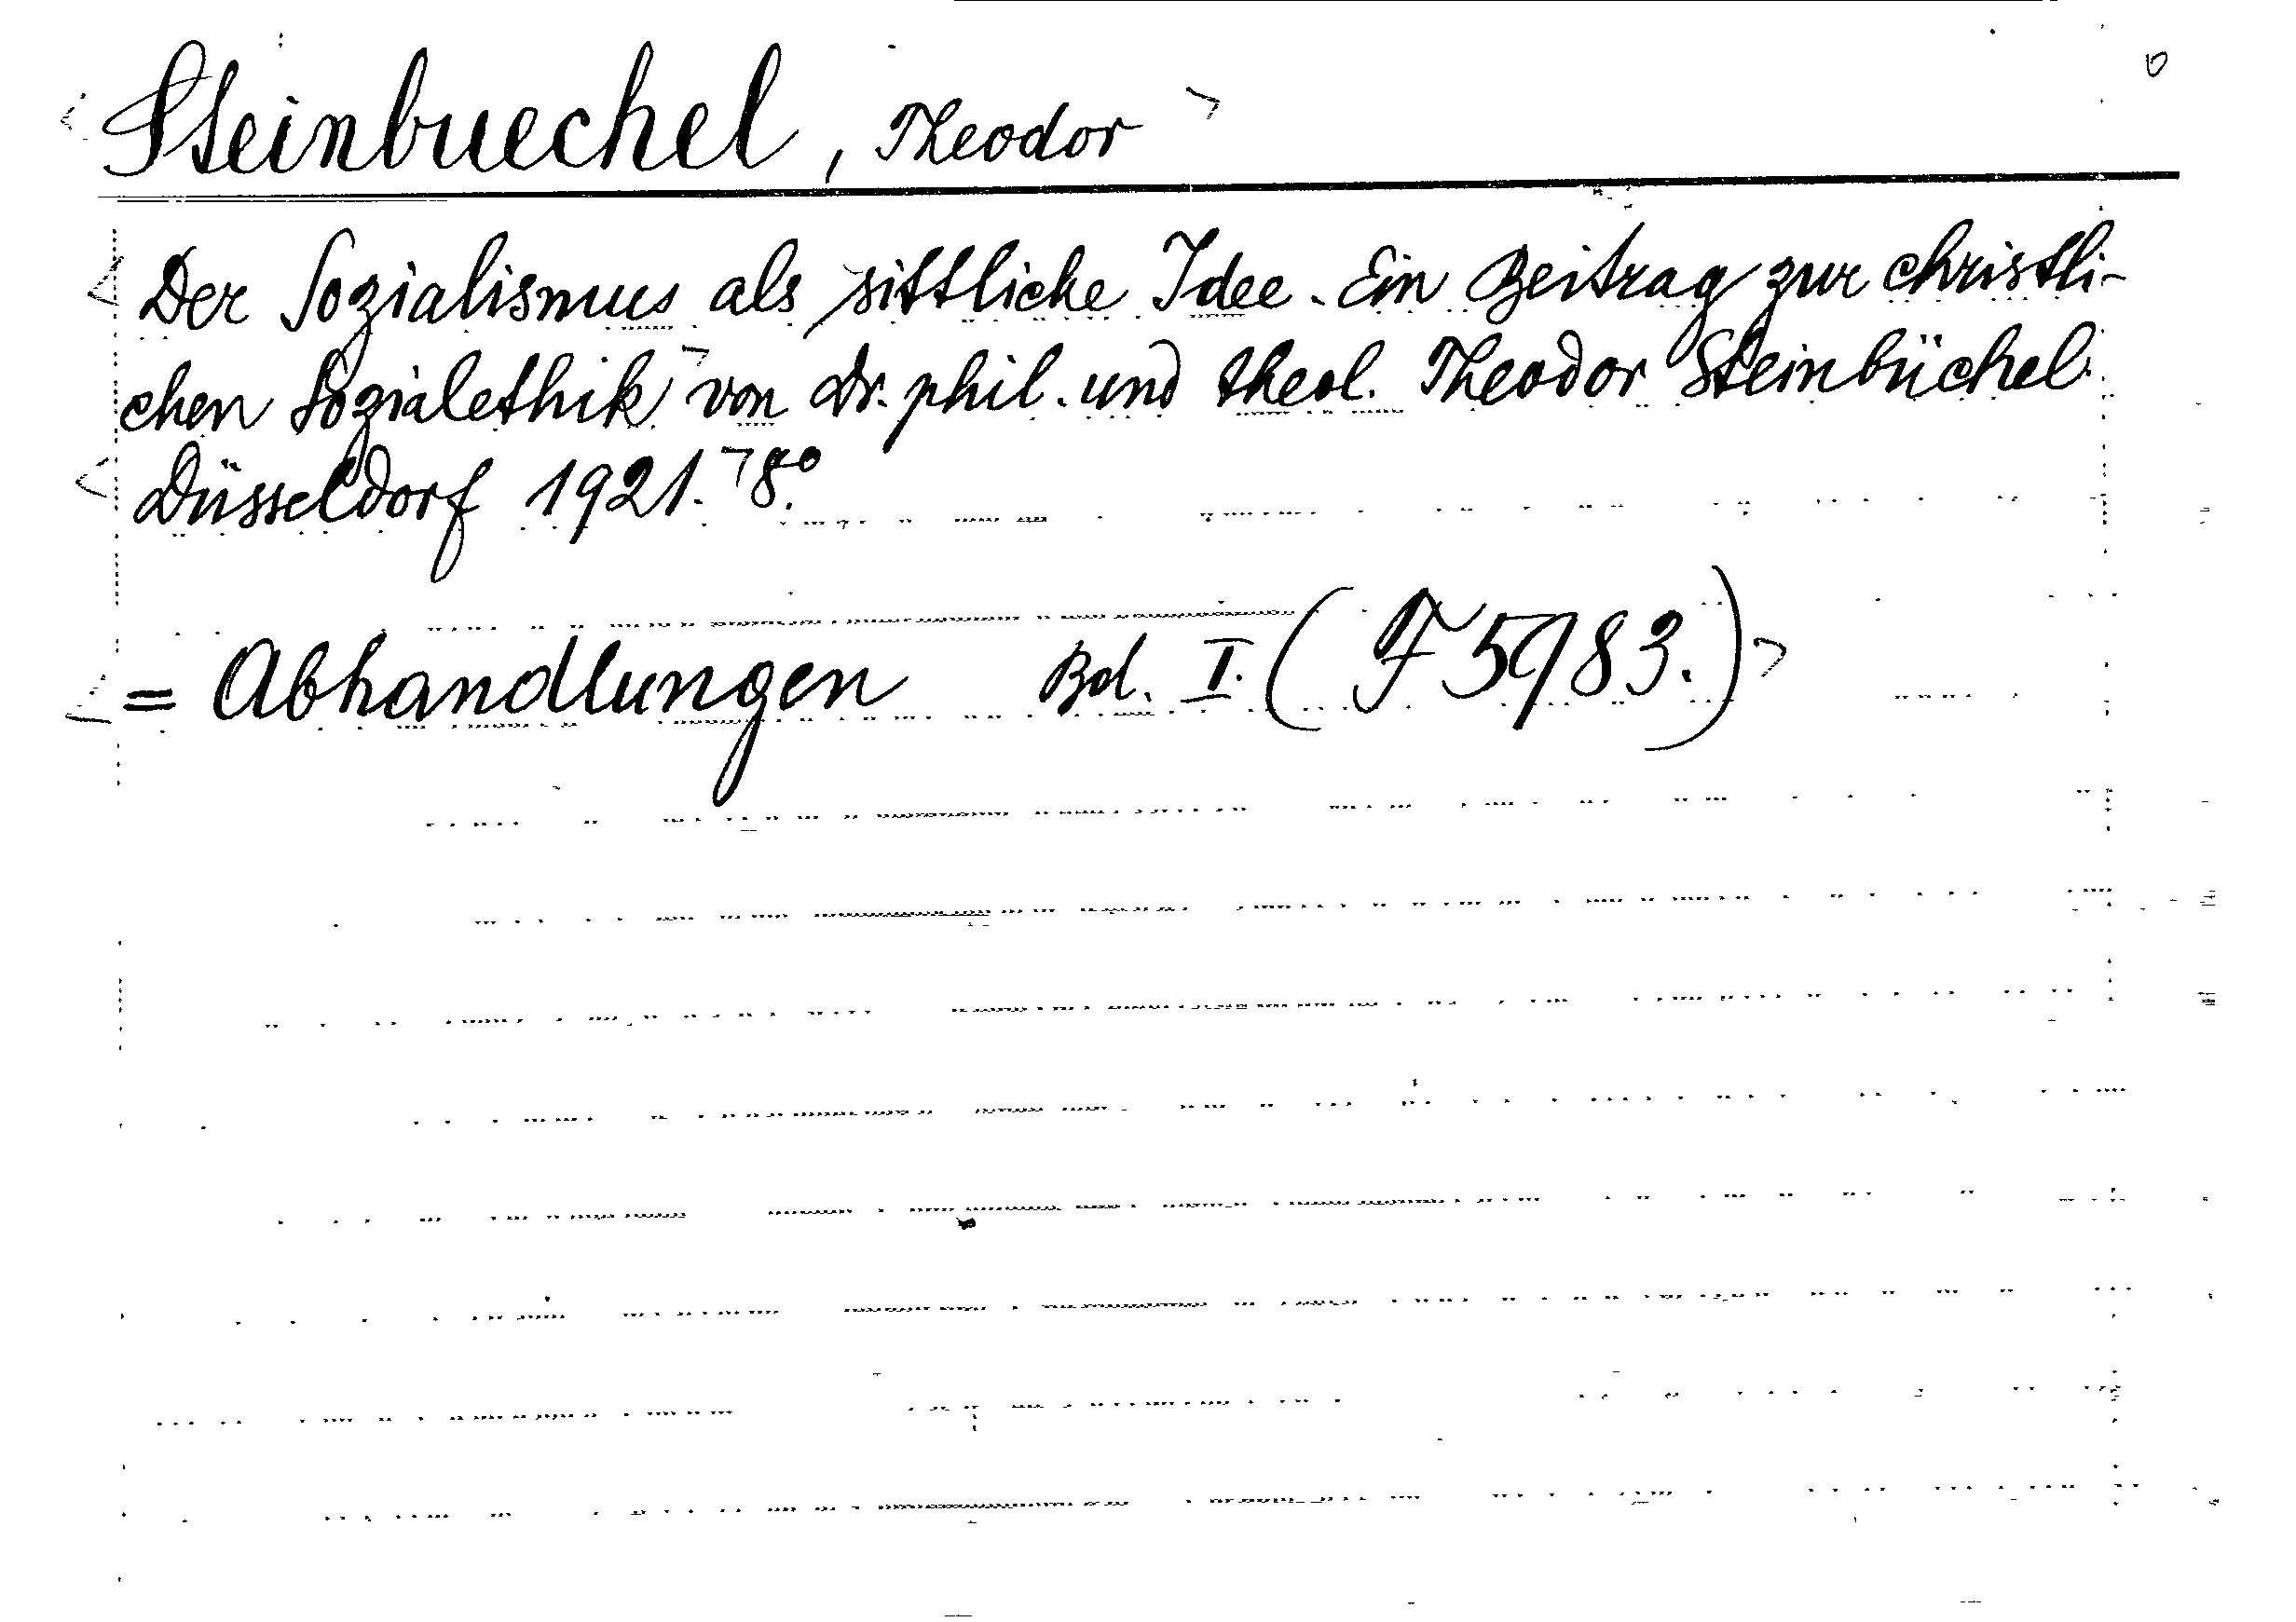 Steinbuechel, Theodor
Der Sozialismus als sittliche Idee. Ein Beitrag zur christli-
chen Sozialethik von Dr. phil. und theol. Theodor Steinbüchel.
Düsseldorf 1921. 8°.
= Abhandlungen Bd. I. (F 5983.)